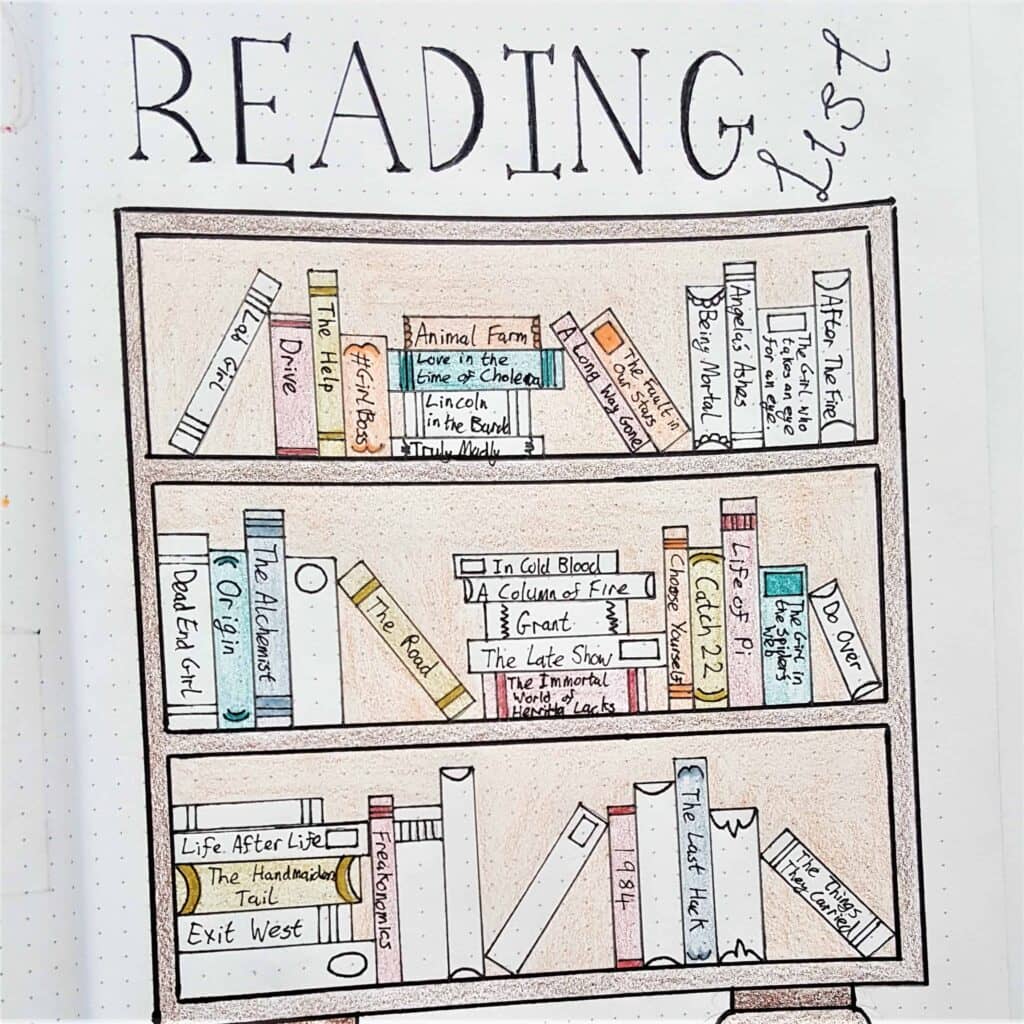 READING
LIST
Lab Girl
Drive
The Help
#GirlBoss
Animal Farm
Love in the
time of Cholera
Lincoln
in the Bardo
Truly Madly
A Long Way Gone
The Fault in
Our Stars
Being Mortal
Angela's Ashes
The Girl who
takes an eye
for an eye.
After The Fire
Dead End Girl
Origin
The Alchemist
The Road
In Cold Blood
A Column of Fire
Grant
The Late Show
The Immortal
World of
Herritta Lacks
Choose Yourself
Catch 22
Life of Pi
The Girl in
the Spider's
Web
Do Over
Life After Life
The Handmaidens
Tail
Exit West
Freakonomics
1984
The Last Hack
The Things
They Carried